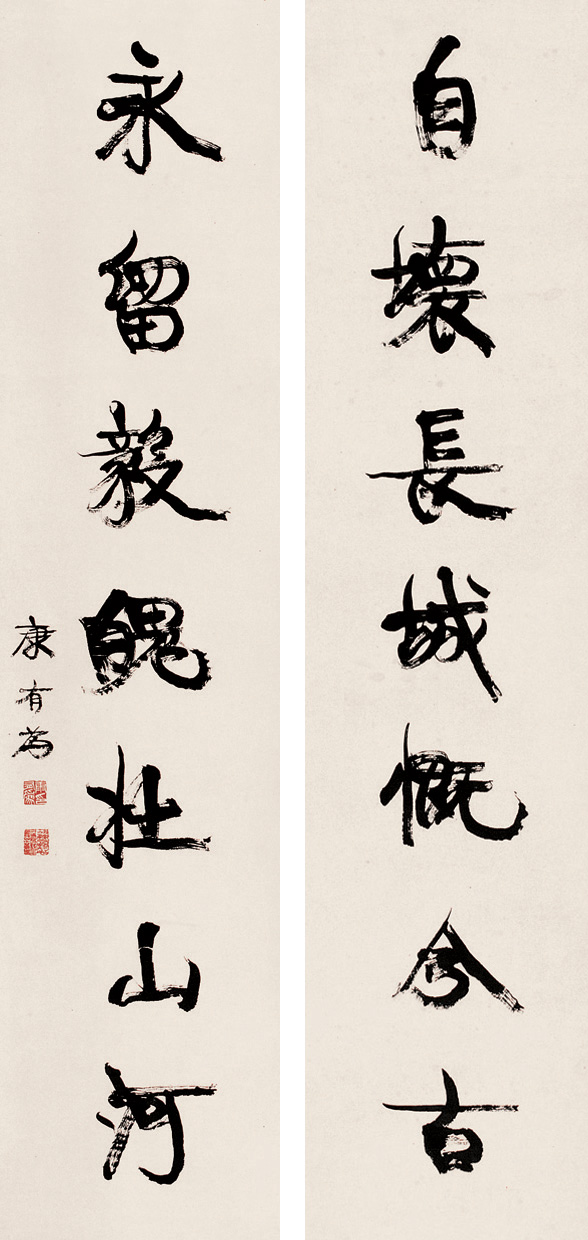 自壞長城慨今古
永留毅魄壯山河
康有為